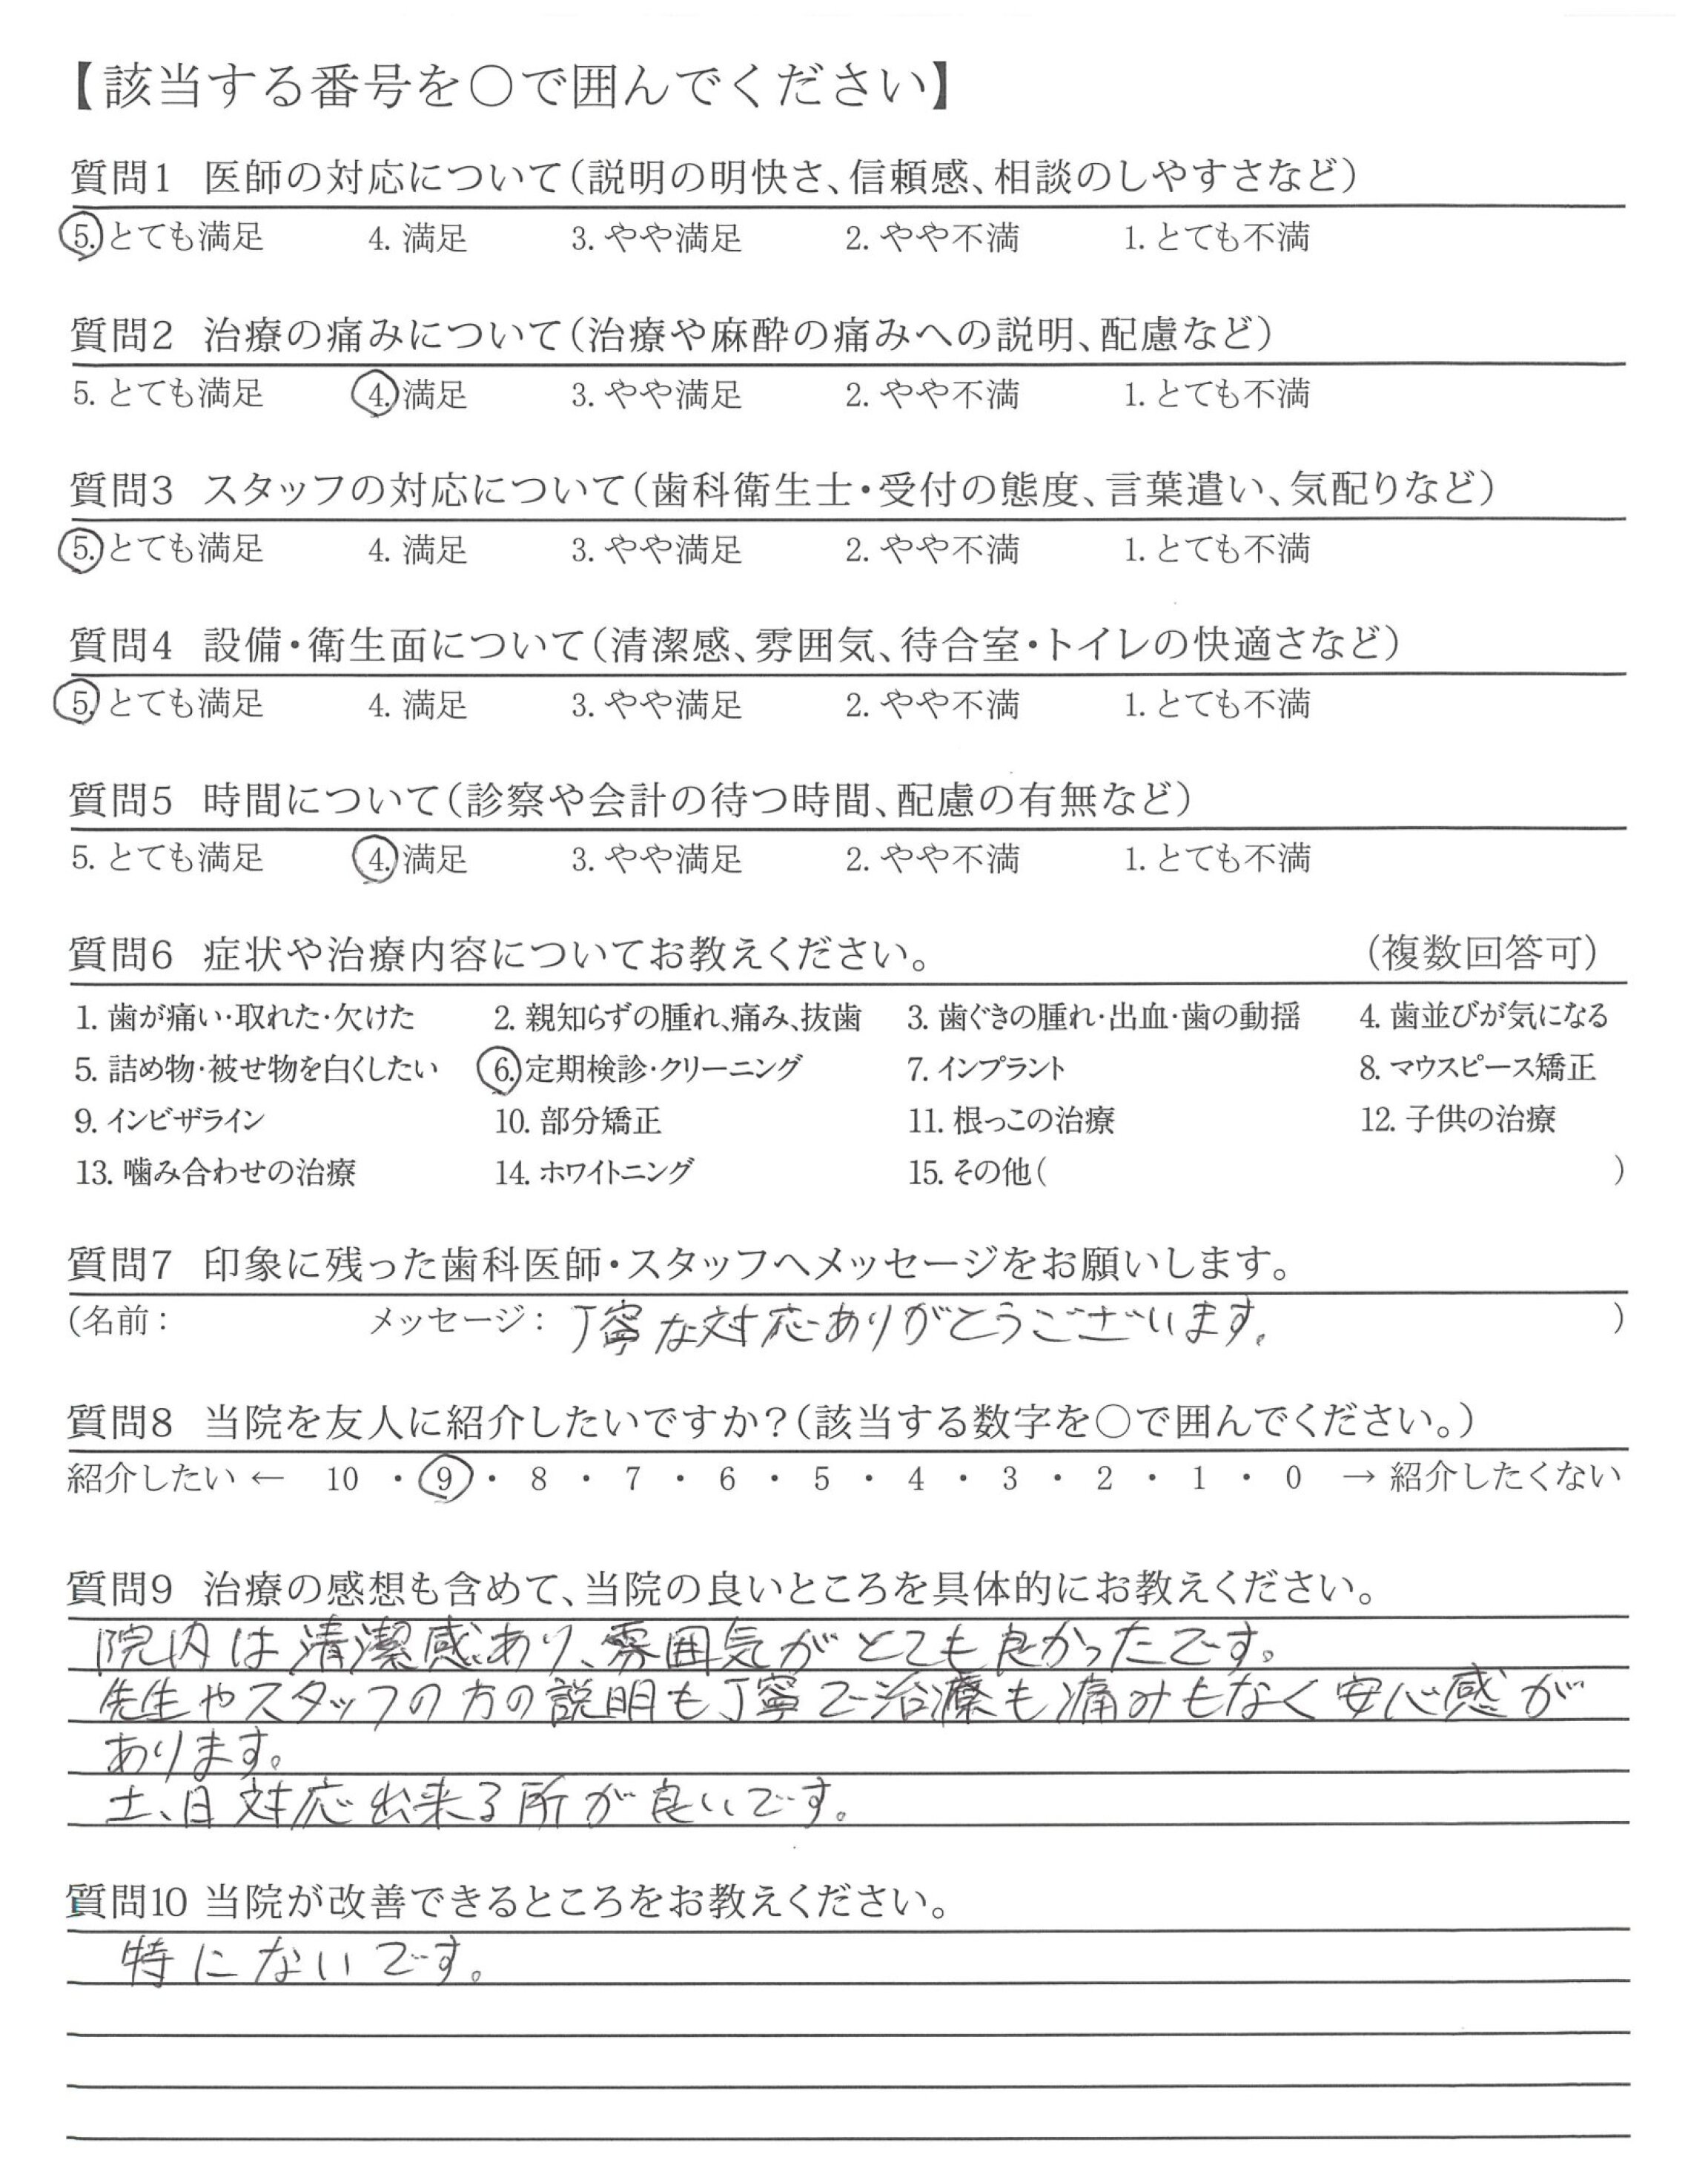 【該当する番号を○で囲んでください】
質問1 医師の対応について(説明の明快さ、信頼感、相談のしやすさなど)
5. とても満足 4. 満足 3. やや満足 2. やや不満 1. とても不満
質問2 治療の痛みについて(治療や麻酔の痛みへの説明、配慮など)
5. とても満足 4. 満足 3. やや満足 2. やや不満 1. とても不満
質問3 スタッフの対応について(歯科衛生士・受付の態度、言葉遣い、気配りなど)
5. とても満足 4. 満足 3. やや満足 2. やや不満 1. とても不満
質問4 設備・衛生面について(清潔感、雰囲気、待合室・トイレの快適さなど)
5. とても満足 4. 満足 3. やや満足 2. やや不満 1. とても不満
質問5 時間について(診察や会計の待つ時間、配慮の有無など)
5. とても満足 4. 満足 3. やや満足 2. やや不満 1. とても不満
質問6 症状や治療内容についてお教えください。 (複数回答可)
1. 歯が痛い・取れた・欠けた 2. 親知らずの腫れ、痛み、抜歯 3. 歯ぐきの腫れ・出血・歯の動揺 4. 歯並びが気になる
5. 詰め物・被せ物を白くしたい 6. 定期検診・クリーニング 7. インプラント 8. マウスピース矯正
9. インビザライン 10. 部分矯正 11. 根っこの治療 12. 子供の治療
13. 噛み合わせの治療 14. ホワイトニング 15. その他( )
質問7 印象に残った歯科医師・スタッフへメッセージをお願いします。
(名前: メッセージ: 丁寧な対応ありがとうございます。 )
質問8 当院を友人に紹介したいですか?(該当する数字を○で囲んでください。)
紹介したい ← 10 ・ 9 ・ 8 ・ 7 ・ 6 ・ 5 ・ 4 ・ 3 ・ 2 ・ 1 ・ 0 → 紹介したくない
質問9 治療の感想も含めて、当院の良いところを具体的にお教えください。
院内は清潔感あり、雰囲気がとても良かったです。
先生やスタッフの方の説明も丁寧で治療も痛みもなく安心感が
あります。
土、日対応出来る所が良いです。
質問10 当院が改善できるところをお教えください。
特にないです。